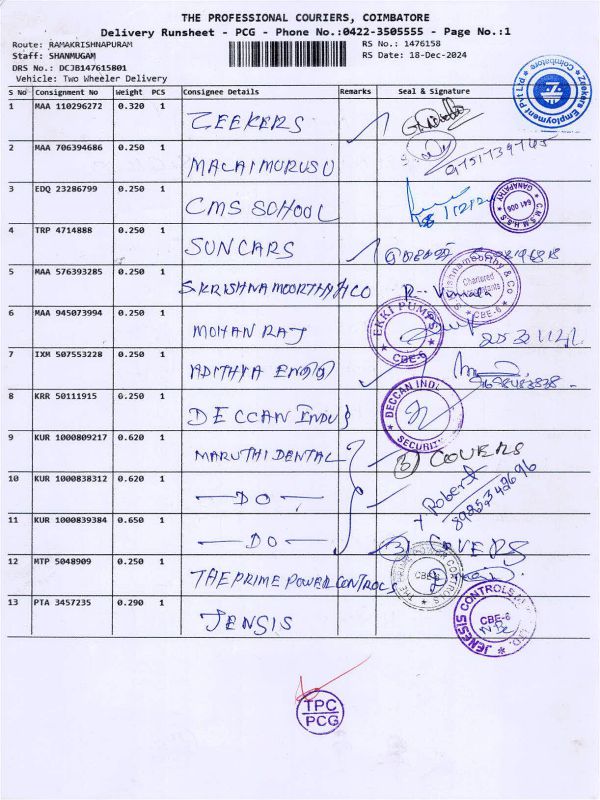 THE PROFESSIONAL COURIERS, COIMBATORE
Delivery Runsheet - PCG - Phone No.:0422-3505555 - Page No.:1
Route: RAMAKRISHNAPURAM
RS No.: 1476158
Staff: SHANMUGAM
RS Date: 18-Dec-2024
DRS No.: DCJB147615801
Vehicle: Two Wheeler Delivery
S No Consignment No Weight PCS Consignee Details Remarks Seal & Signature
1 MAA 110296272 0.320 1 ZEEKERS
Zeekers Employment Pvt Ltd
Coimbatore
2 MAA 706394686 0.250 1 MALAIMURUSU
9751739765
3 EDQ 23286799 0.250 1 CMS SCHOOL
C.M.S.M.H.S.S
641 006
GANAPATHY
4 TRP 4714888 0.250 1 SUNCARS
5 MAA 576393285 0.250 1 S.KRISHNAMOORTHY & CO
Chartered
CBE-6
6 MAA 945073994 0.250 1 MOHAN RAJ
EKKI PUMPS
CBE-6
7 IXM 507553228 0.250 1 ADITHYA ENGG
8 KRR 50111915 0.250 1 DECCAN INDUS
DECCAN INDL
SECURITY
9 KUR 1000809217 0.620 1 MARUTHI DENTAL
(3) COVERS
10 KUR 1000838312 0.620 1 — DO —
Robert
8925342696
11 KUR 1000839384 0.650 1 — DO —
(3) COVERS
12 MTP 5048909 0.250 1 THE PRIME POWER CONTROLS
THE PRIME POWER CONTROLS
CBE-6
13 PTA 3457235 0.290 1 JENSIS
JENESIS CONTROLS
CBE-6
TPC
PCG